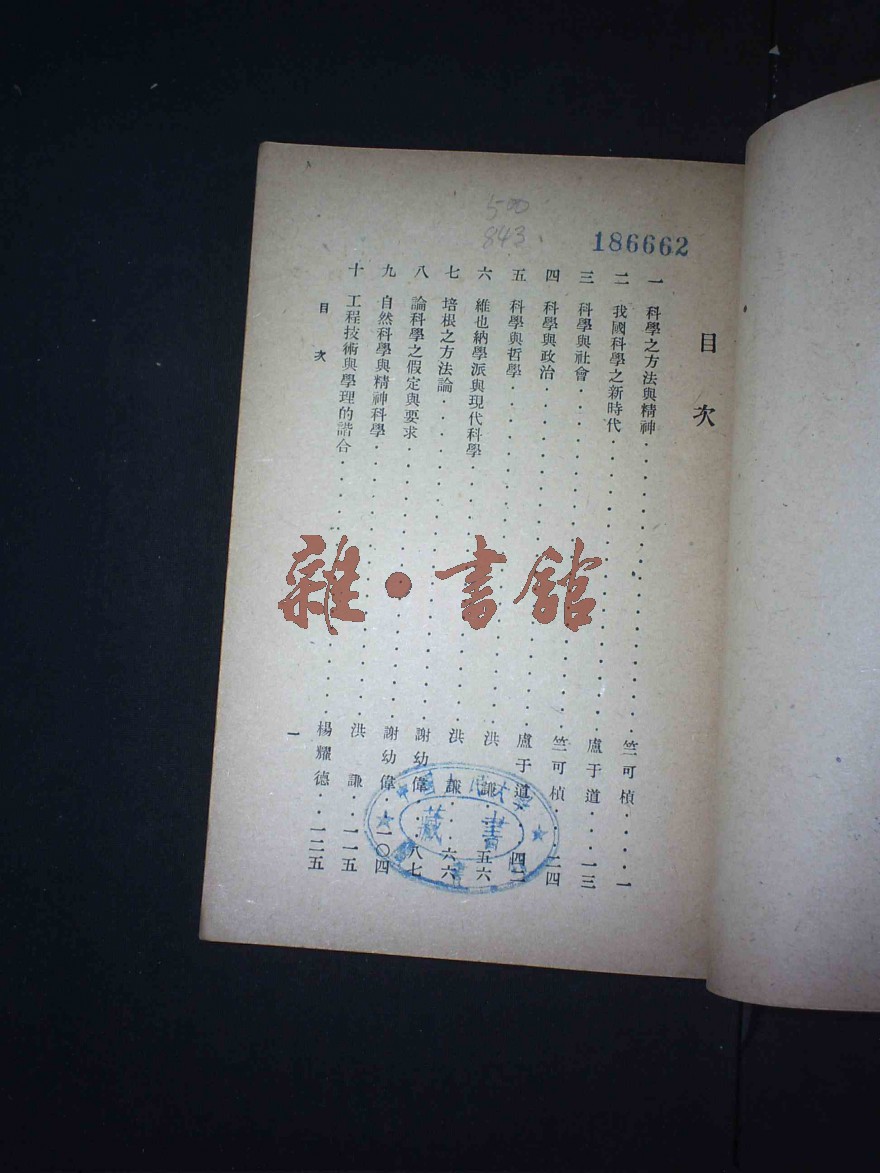 500
843
186662
目次
一 科學之方法與精神 竺可楨 一
二 我國科學之新時代 盧于道 一三
三 科學與社會 竺可楨 二四
四 科學與政治 盧于道 四二
五 科學與哲學 洪謙 五六
六 維也納學派與現代科學 洪謙 六六
七 培根之方法論 謝幼偉 八七
八 論科學之假定與要求 謝幼偉 一〇四
九 自然科學與精神科學 洪謙 一一五
十 工程技術與學理的諧合 楊耀德 一二五
目次
一
中國人民大學
藏書
雜·書館